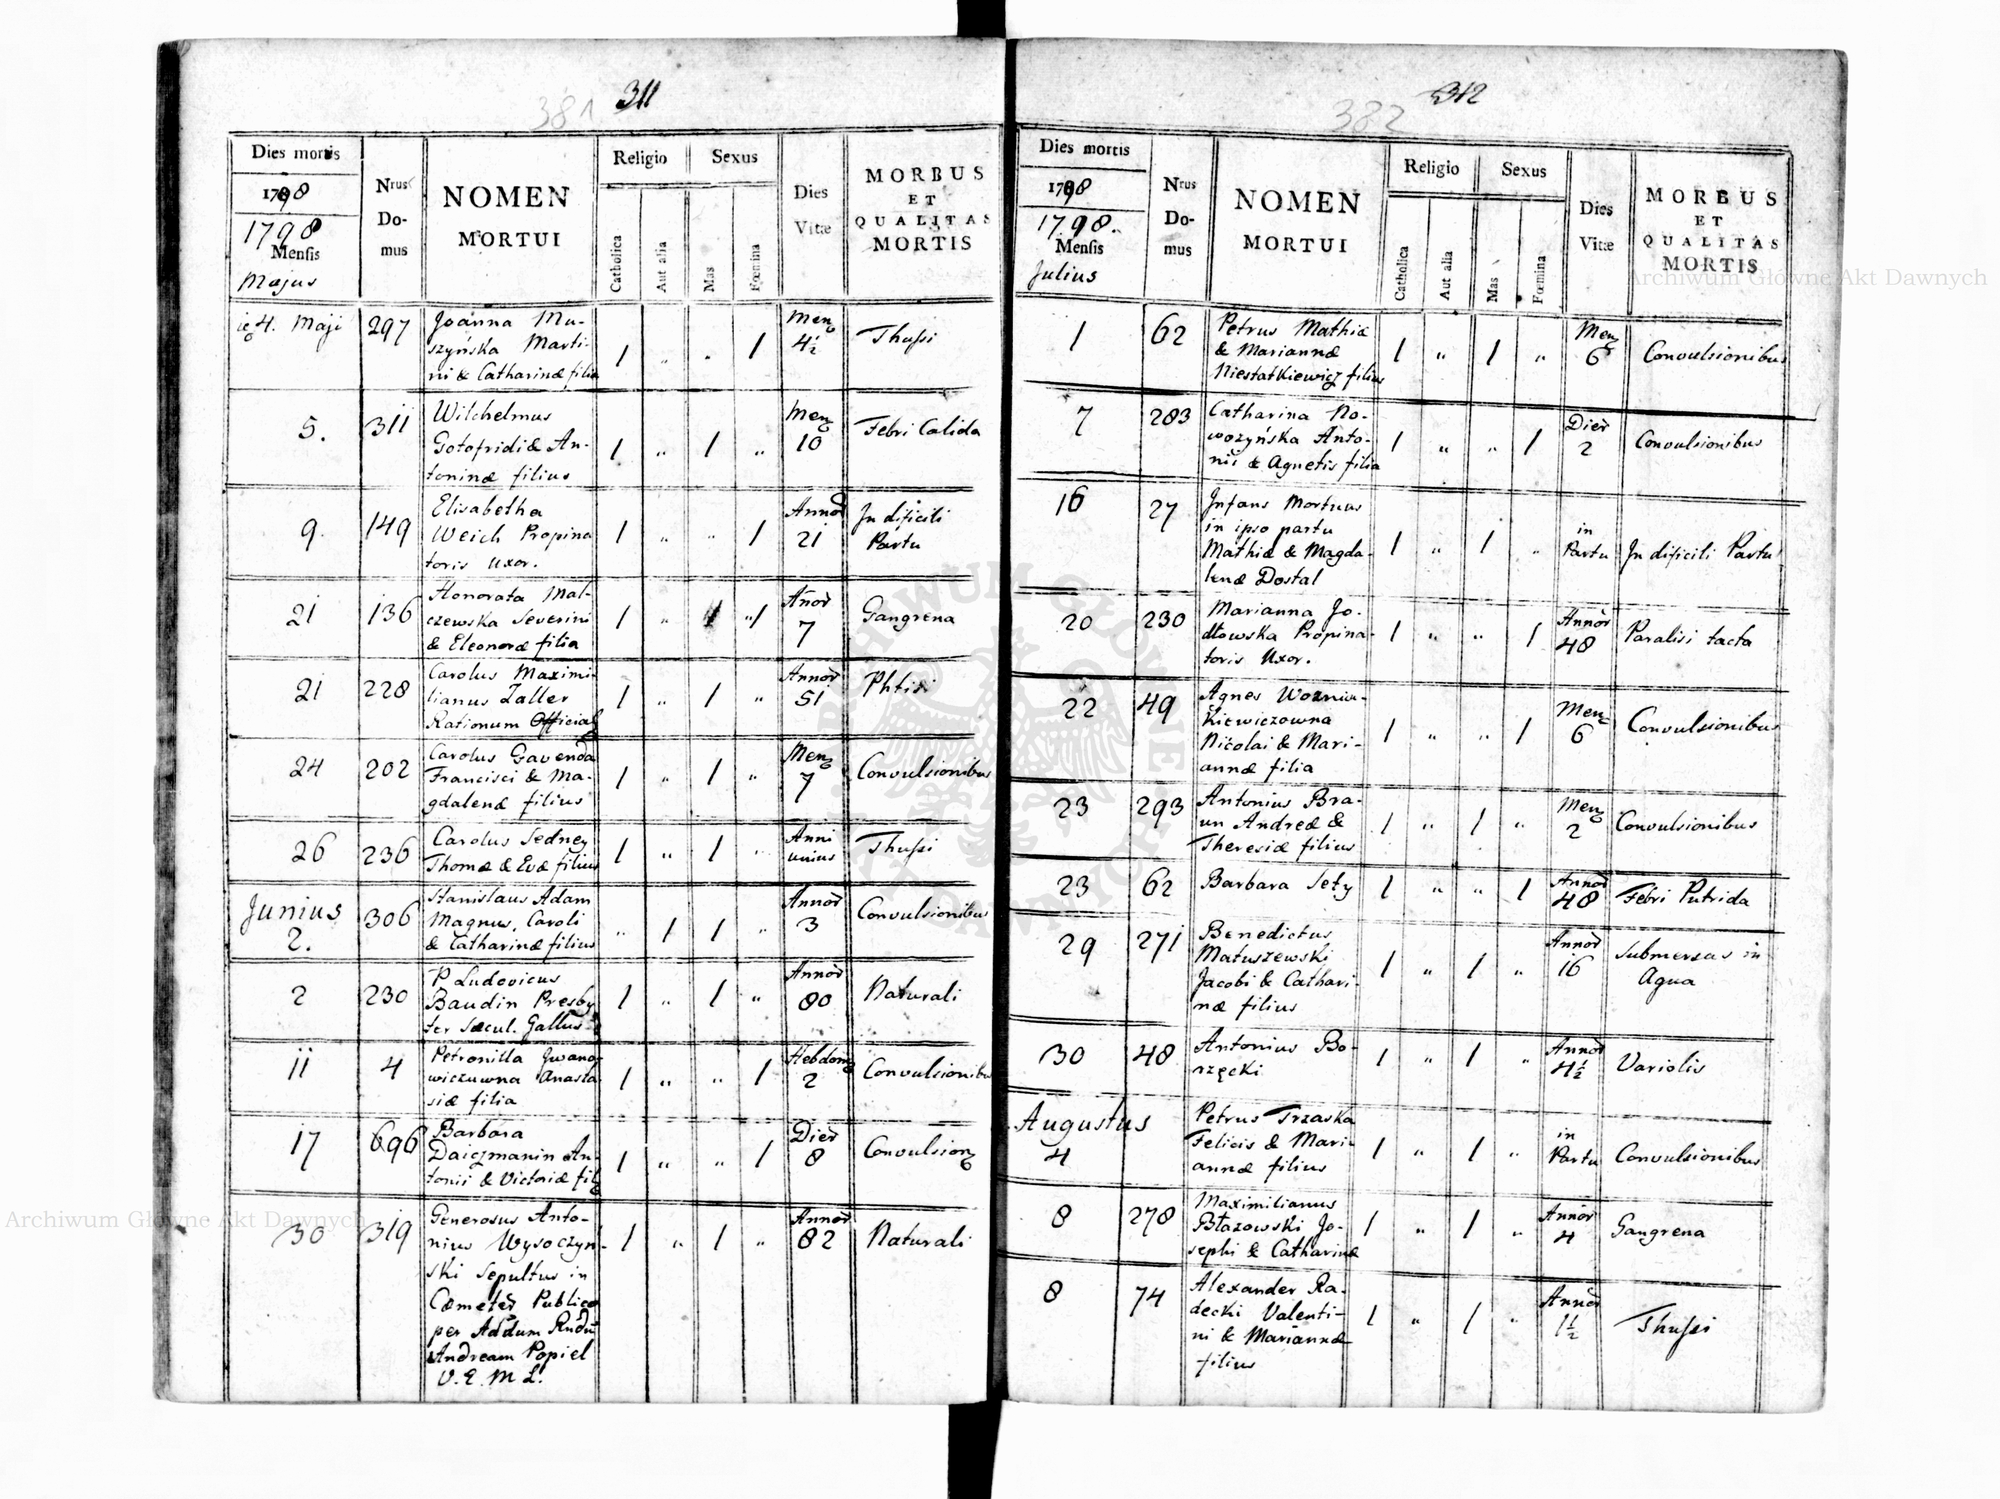 381 311
Dies mortis
1798
1798
Mensis
Majus
Nrus
Do-
mus
NOMEN
MORTUI
Religio
Catholica
Aut alia
Sexus
Mas
Fœmina
Dies
Vitæ
MORBUS
ET
QUALITAS
MORTIS
4. Maji 297
Joanna Mu-
szyńska Marti-
ni & Catharinæ filia
1 " " 1
Men
4½
Thussi
5. 311
Wilchelmus
Gotofridi & An-
toninæ filius
1 " 1 "
Men
10
Febri Calida
9. 149
Elisabetha
Weich Propina
toris uxor.
1 " " 1
Annor
21
In dificili
Partu
21 136
Honorata Mal-
czewska Severini
& Eleonoræ filia
1 " " 1
Añor
7
Gangrena
21 228
Carolus Maximi-
lianus Zaller
Rationum Official
1 " 1 "
Annor
51
Phtisi
24 202
Carolus Gavenda
Francisci & Ma-
gdalenæ filius
1 " 1 "
Men
7
Convulsionibus
26 236
Carolus Sedney
Thomæ & Evæ filius
1 " 1 "
Anni
unius
Thussi
Junius
2. 306
Stanislaus Adam
Magnus, Caroli
& Catharinæ filius
" 1 1 "
Annor
3
Convulsionibus
2 230
P. Ludovicus
Baudin Presby
ter Sæcul. Gallus
1 " 1 "
Annor
80
Naturali
11 4
Petronilla Jwano
wiczuwna Anasta
siæ filia
1 " " 1
Hebdom
2
Convulsionibus
17 696
Barbara
Daiczmanin An-
tonii & Victoriæ fil
1 " " 1
Dier
8
Convulsion
30 319
Generosus Anto-
nius Wysoczyn-
ski Sepultus in
Cæmeter Publico
per Addum Rndu
Andream Popiel
V. E. M L.
1 " 1 "
Annor
82
Naturali
382 312
Dies mortis
1798
1798.
Mensis
Julius
Nrus
Do-
mus
NOMEN
MORTUI
Religio
Catholica
Aut alia
Sexus
Mas
Fœmina
Dies
Vitæ
MORBUS
ET
QUALITAS
MORTIS
1 62
Petrus Mathiæ
& Mariannæ
Niestatkiewicz filius
1 " 1 "
Men
6
Convulsionibus
7 283
Catharina No-
wozyńska Anto-
nii & Agnetis filia
1 " " 1
Dier
2
Convulsionibus
16 27
Infans Mortuus
in ipso partu
Mathiæ & Magda-
lenæ Dostal
1 " 1 "
in
Partu
In dificili Partu
20 230
Marianna Jo-
dłowska Propina-
toris Uxor.
1 " " 1
Annor
48
Paralisi tacta
22 49
Agnes Woznia-
kiewiczowna
Nicolai & Mari-
annæ filia
1 " " 1
Men
6
Convulsionibus
23 293
Antonius Bra-
un Andreæ &
Theresiæ filius
1 " 1 "
Men
2
Convulsionibus
23 62
Barbara Sety
1 " " 1
Annor
48
Febri Putrida
29 271
Benedictus
Matuszewski
Jacobi & Cathari-
næ filius
1 " 1 "
Annor
16
Submersus in
Aqua
30 48
Antonius Bo-
rzęcki
1 " 1 "
Annor
4½
Variolis
Augustus
4
Petrus Trzaska
Felicis & Mari-
annæ filius
1 " 1 "
in
Partu
Convulsionibus
8 278
Maximilianus
Błazowski Jo-
sephi & Catharinæ
1 " 1 "
Annor
4
Gangrena
8 74
Alexander Ra-
decki Valenti-
ni & Mariannæ
filius
1 " 1 "
Annor
1½
Thussi
Archiwum Główne Akt Dawnych
Archiwum Główne Akt Dawnych
ARCHIWUM GŁÓWNE AKT DAWNYCH